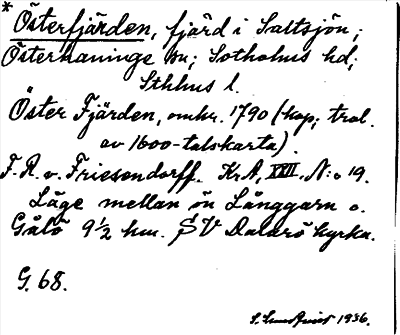 * Österfjärden, fjärd i Saltsjön;
Österhaninge sn; Sotholms hd;
Sthlms l.
Öster Fjärden, omkr. 1790 (kop; trol.
av 1600-talskarta).
F. R. v. Friesendorff. KrA, XXII, N:o 19.
Läge mellan ön Långgarn o.
Gålö 9½ km. SV Dalarö kyrka.
G. 68.
1936.